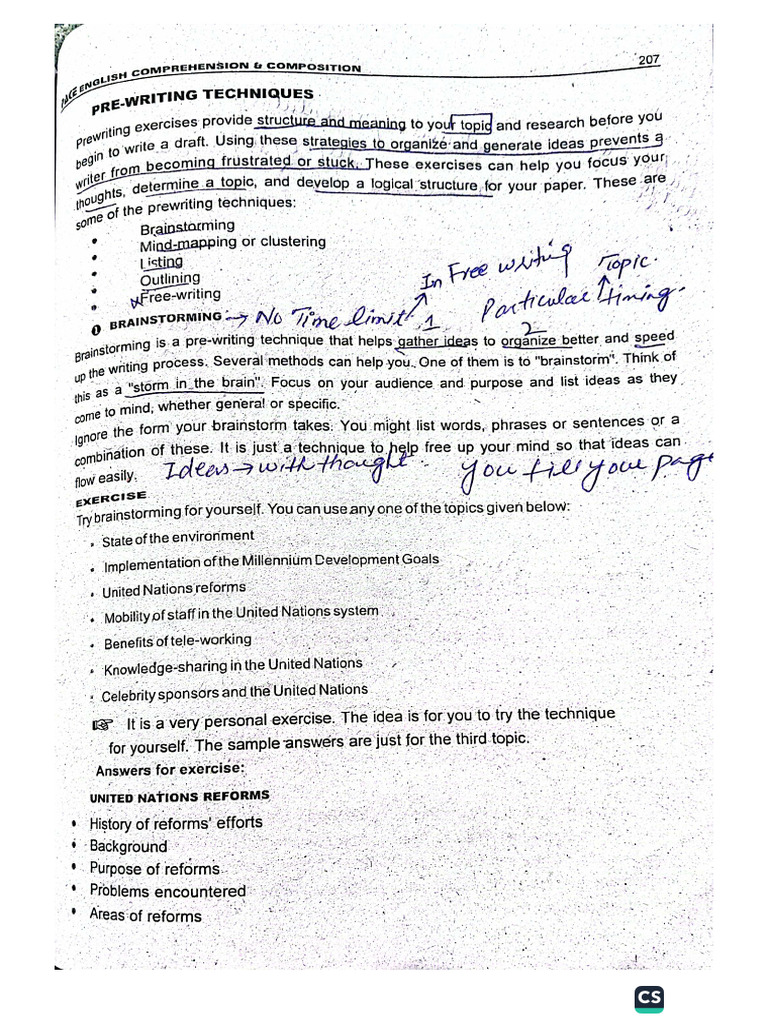 PAGE ENGLISH COMPREHENSION & COMPOSITION 207
PRE-WRITING TECHNIQUES
Prewriting exercises provide structure and meaning to your topic and research before you
begin to write a draft. Using these strategies to organize and generate ideas prevents a
writer from becoming frustrated or stuck. These exercises can help you focus your
thoughts, determine a topic, and develop a logical structure for your paper. These are
some of the prewriting techniques:
• Brainstorming
• Mind-mapping or clustering
• Listing
• Outlining
• Free-writing
In Free writing Topic.
❶ BRAINSTORMING → No Time limit. Particular timing.
1 2
Brainstorming is a pre-writing technique that helps gather ideas to organize better and speed
up the writing process. Several methods can help you. One of them is to "brainstorm". Think of
this as a "storm in the brain". Focus on your audience and purpose and list ideas as they
come to mind, whether general or specific.
Ignore the form your brainstorm takes. You might list words, phrases or sentences or a
combination of these. It is just a technique to help free up your mind so that ideas can
flow easily. Ideas → with thought. You fill your page
EXERCISE
Try brainstorming for yourself. You can use any one of the topics given below:
• State of the environment
• Implementation of the Millennium Development Goals
• United Nations reforms
• Mobility of staff in the United Nations system
• Benefits of tele-working
• Knowledge-sharing in the United Nations
• Celebrity sponsors and the United Nations
☞ It is a very personal exercise. The idea is for you to try the technique
for yourself. The sample answers are just for the third topic.
Answers for exercise:
UNITED NATIONS REFORMS
• History of reforms' efforts
• Background
• Purpose of reforms
• Problems encountered
• Areas of reforms
CS